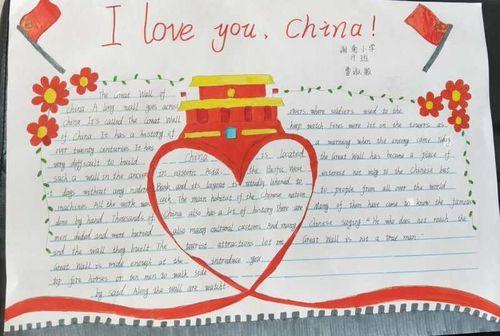 I love you, China!
湘南小学
班
The Great Wall of
China A long wall goes across
China. It's called The Great Wall
of China. It has a history of
over twenty centuries. It was
very difficult to build
such a wall in the ancient
days without any modern
machines. All the work was
done by hand. Thousands of
men died and were buried
and the wall they built. The
Great Wall is wide enough at the
top five horses or ten men to walk side
by side. Along the wall are watch-
China is located
in eastern Asia, the Pacific West
Bank and its layout is
such. The main habitat of the Chinese nation.
China also has a lot of history. There are
also many cultural customs. And many
tourist attractions. let me
introduce you.
towers, where soldiers used to the
keep watch. Fires were lit on the towers as
a warning when the enemy came. Today
the Great Wall has become a place of
interest not only to the Chinese but
to people from all over the world.
Many of them have come to know the famous
Chinese saying "He who does not reach the
Great Wall is not a true man."